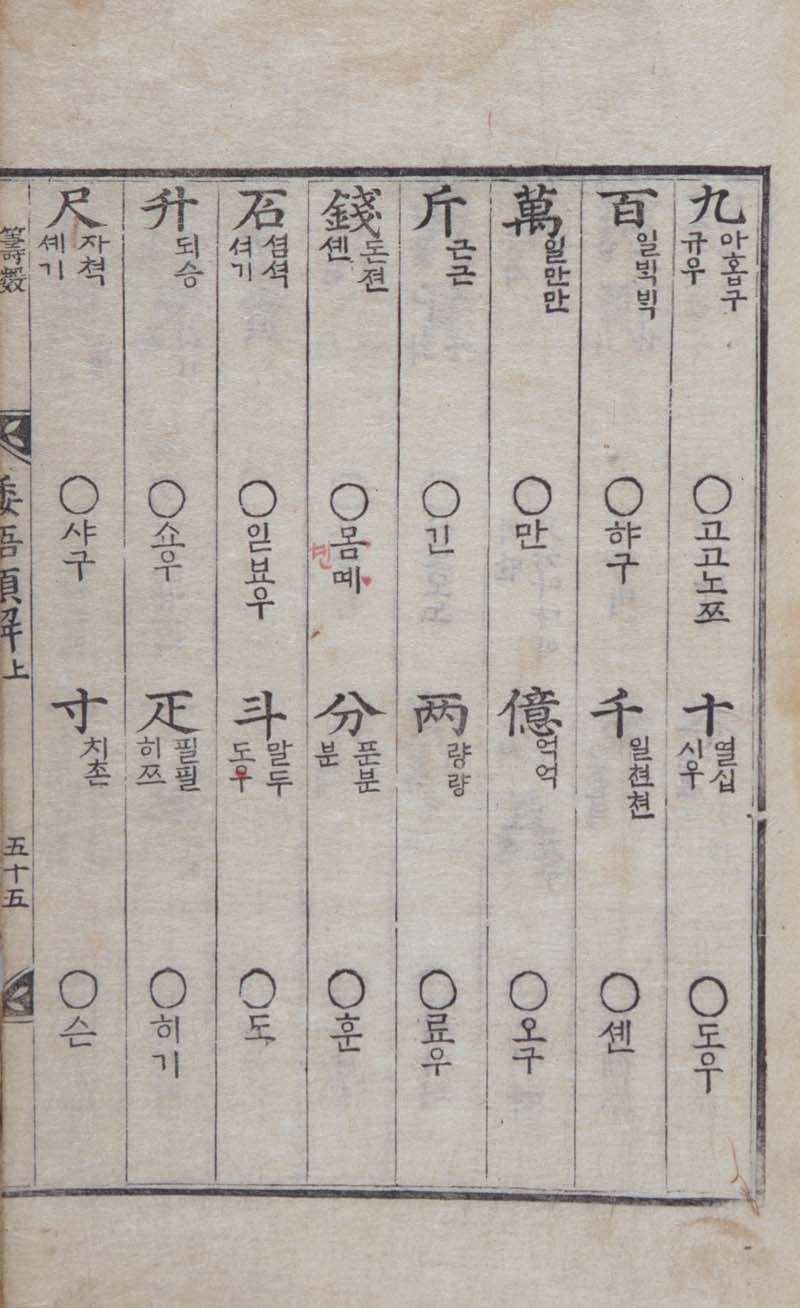 九 아홉구 규우 ○고고노쯔 十 열십 시우 ○도우
百 일빅빅 ○햐구 千 일쳔쳔 ○셴
萬 일만만 ○만 億 억억 ○오구
斤 근근 ○긴 两 량량 ○료우
錢 돈젼 셴 ○몸몌 分 푼분 분 ○훈
石 셤셕 셔기 ○읻뵤우 斗 말두 도우 ○도
升 되승 ○쇼우 疋 필필 히쯔 ○히기
尺 자쳑 셰기 ○샤구 寸 치촌 ○슨
筭數 倭語類解上 五十五